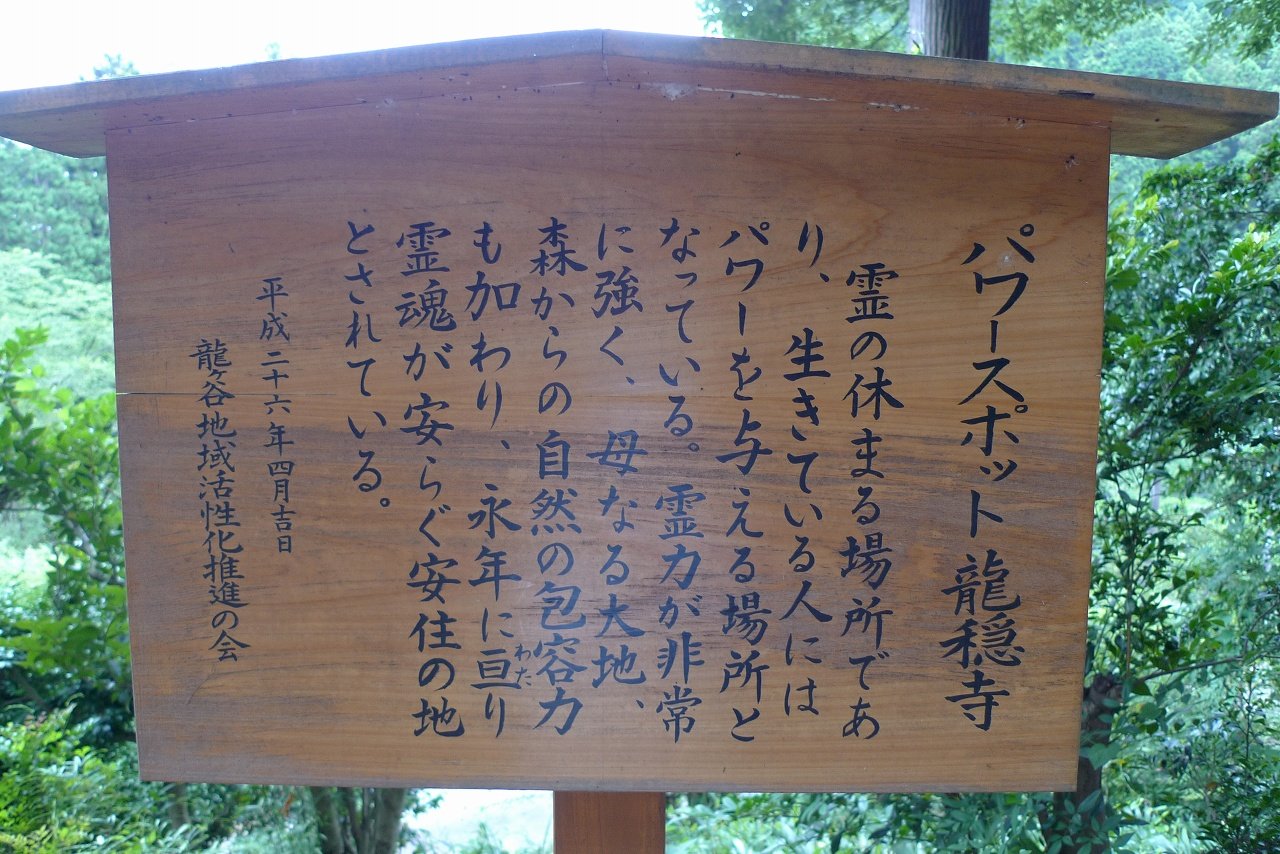 パワースポット龍穏寺
霊の休まる場所であ
り、生きている人には
パワーを与える場所と
なっている。霊力が非常
に強く、母なる大地、
森からの自然の包容力
も加わり、永年に亘り
わた
霊魂が安らぐ安住の地
とされている。
平成二十六年四月吉日
龍ヶ谷地域活性化推進の会